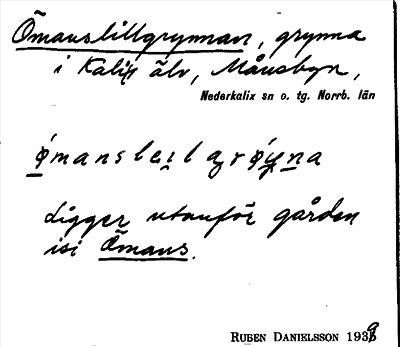 Ömanslillgrynnan, grynna
i Kalix älv, Månsbyn,
Nederkalix sn o. tg. Norrb. län
Ligger utanför gården
isi Ömans.
RUBEN DANIELSSON 1939